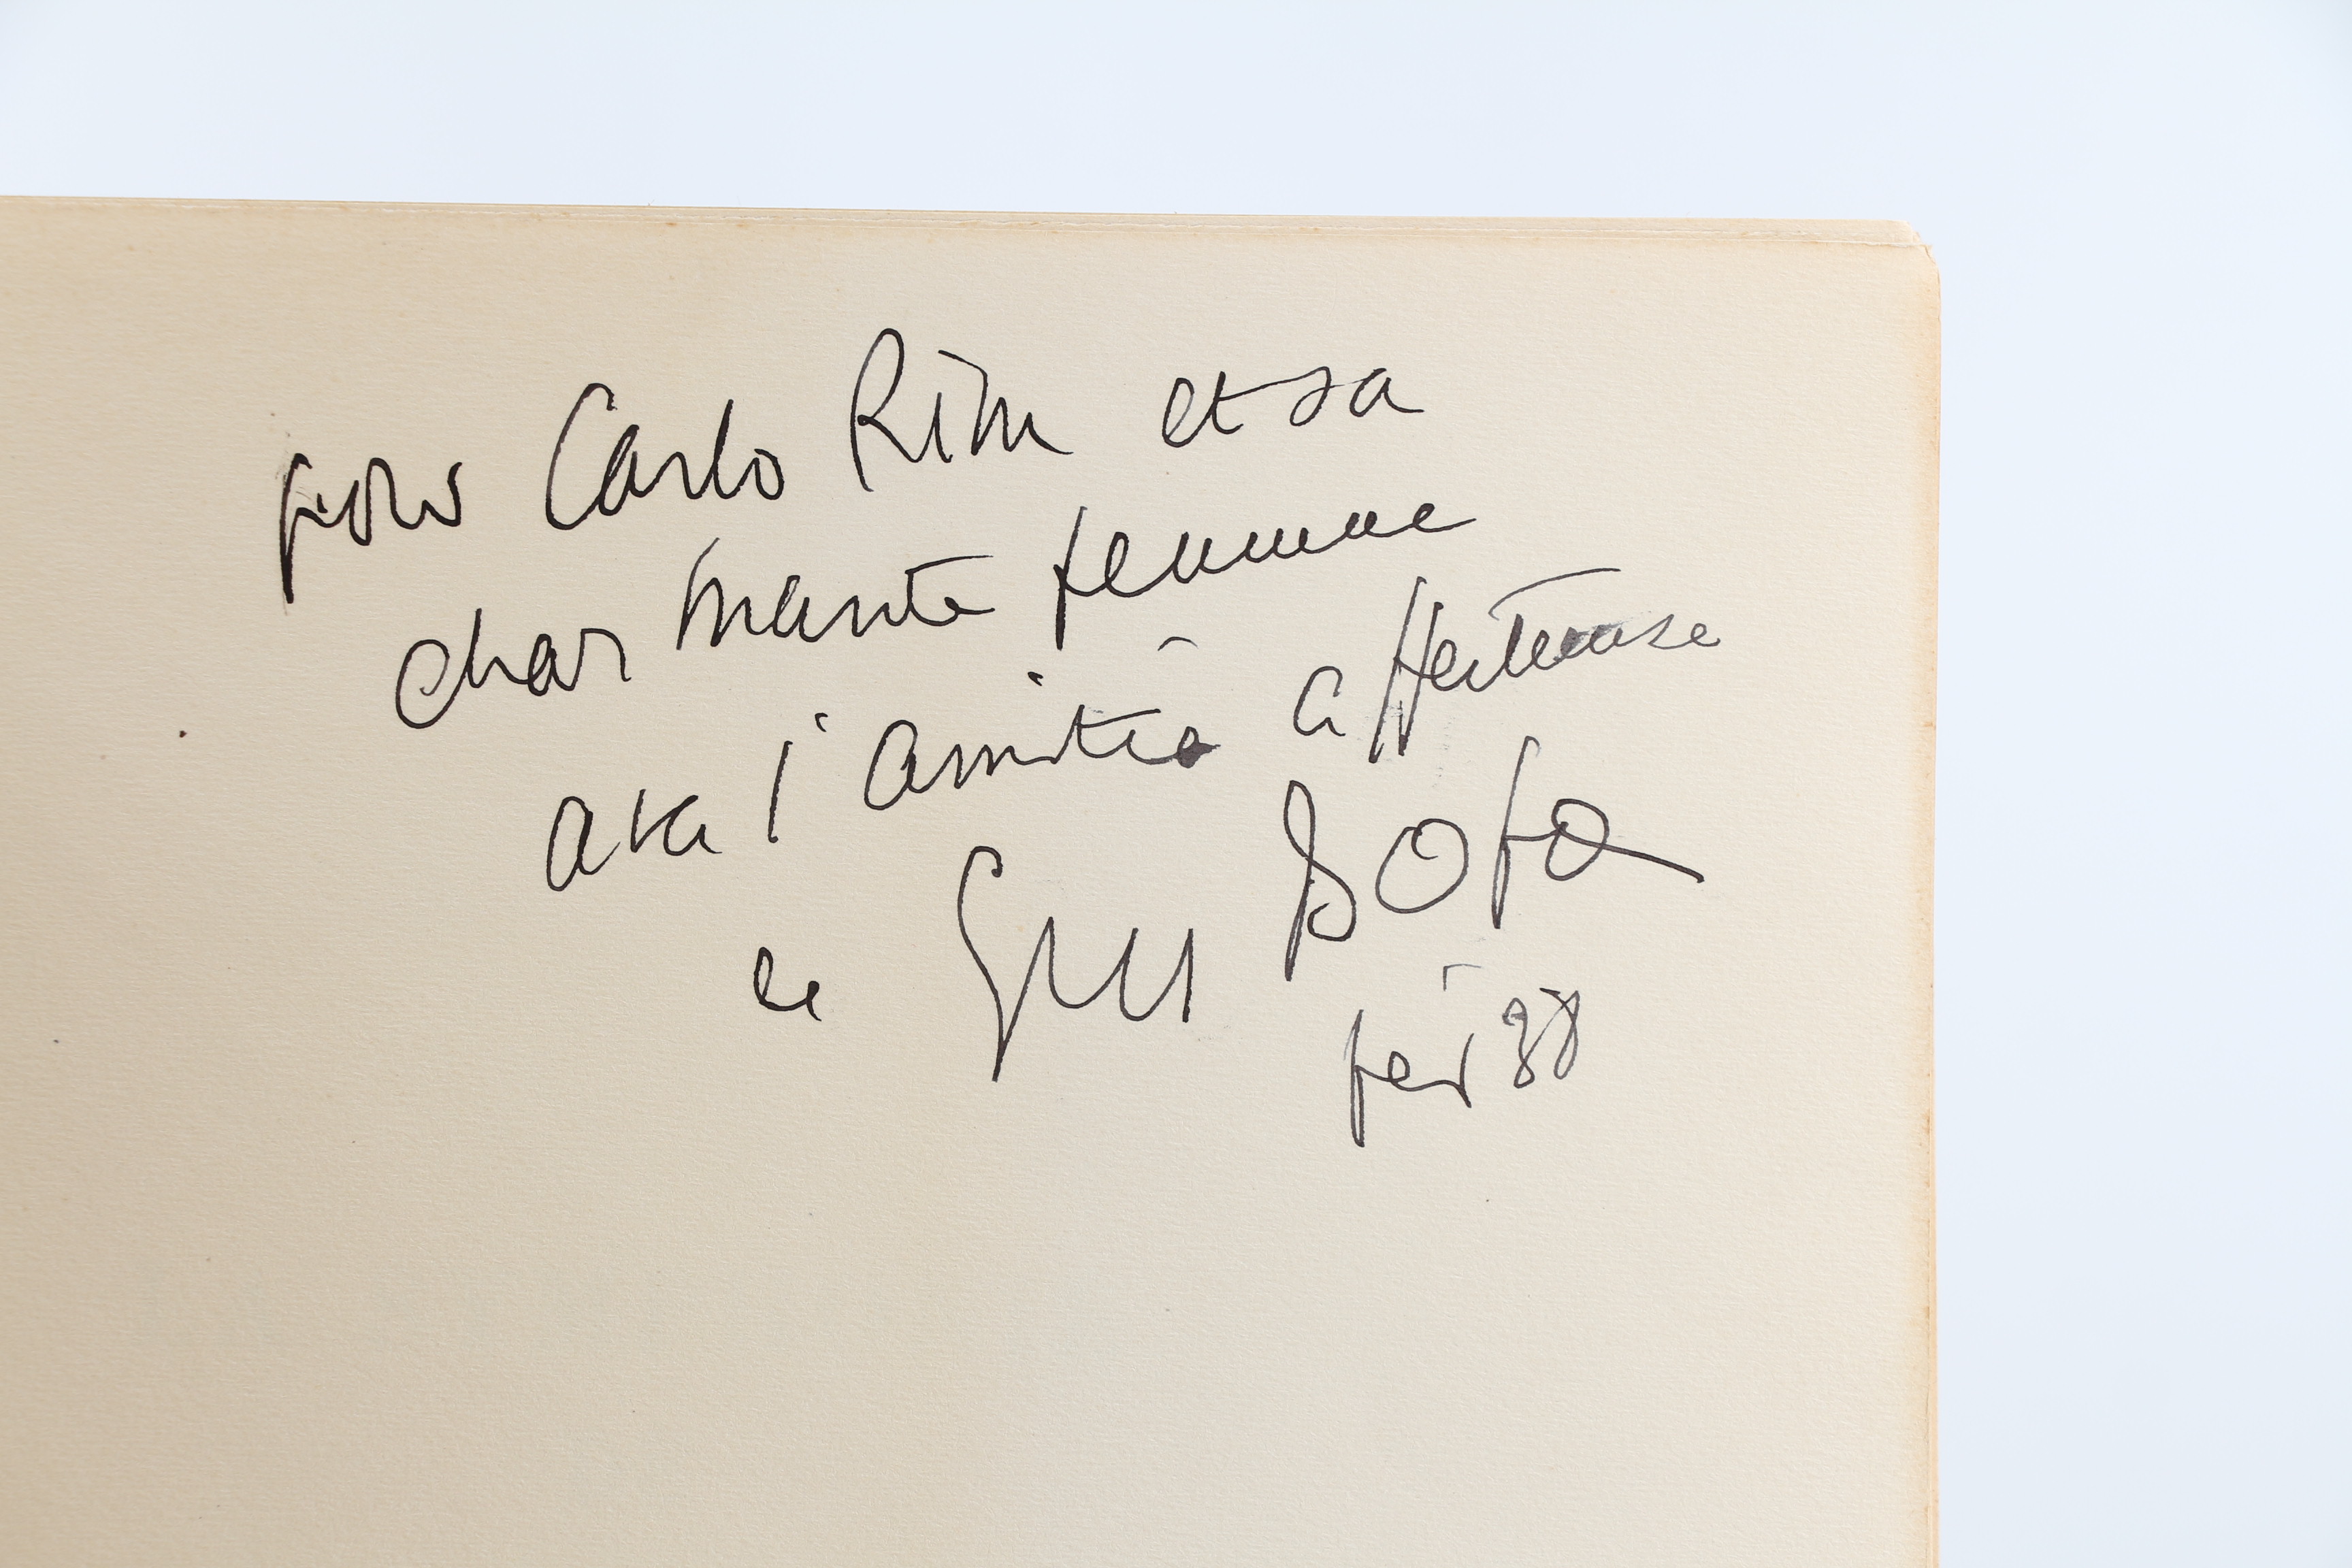 pour Carlo Rim et sa
charmante femme
avec l'amitié affectueuse
de Gus Bofa
fév 38